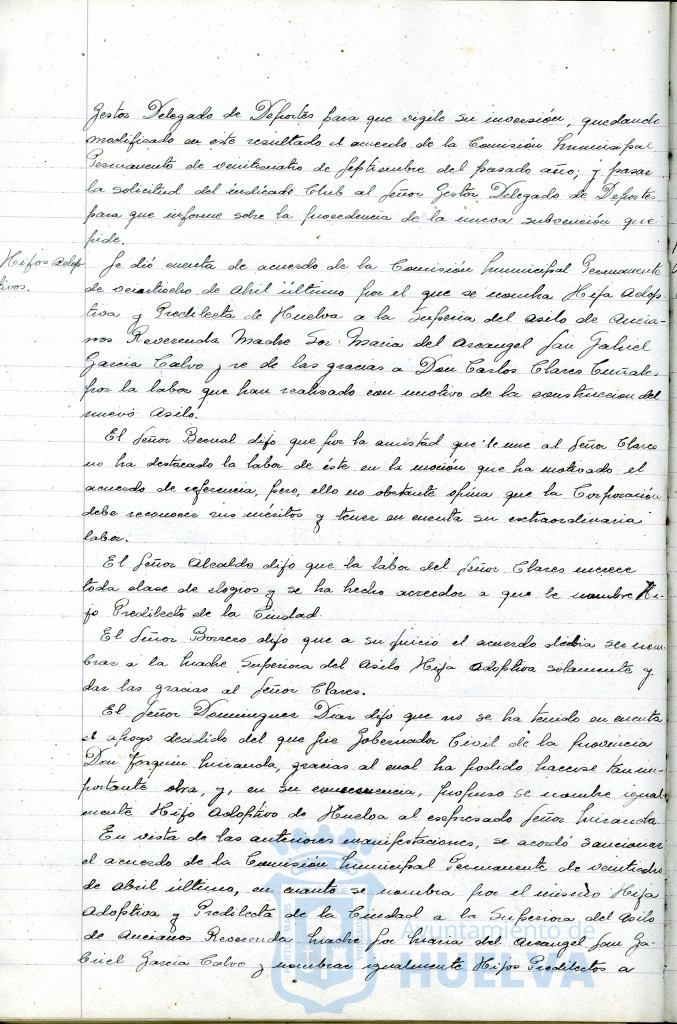 Gestor Delegado de Deportes para que vigile su inversión, quedando
modificado en este resultado el acuerdo de la Comisión Municipal
Permanente de veinticuatro de Septiembre del pasado año; y pasar
la solicitud del indicado Club al Señor Gestor Delegado de Deportes
para que informe sobre la procedencia de la nueva subvención que
pide.
Hijos Adop-
tivos.
Se dió cuenta de acuerdo de la Comisión Municipal Permanente
de veintiocho de Abril último por el que se nombra Hija Adop-
tiva y Predilecta de Huelva a la Superiora del Asilo de Ancia-
nos Reverenda Madre Sor Maria del Arcangel San Gabriel
Garcia Calvo y se de las gracias a Don Carlos Clares
por la labor que han realizado con motivo de la construccion del
nuevo Asilo.
El Señor Bernal dijo que por la amistad que le une al Señor Clares
no ha destacado la labor de éste en la moción que ha motivado el
acuerdo de referencia, pero, ello no obstante opina que la Corporación
debe reconocer sus méritos y tener en cuenta su extraordinaria
labor.
El Señor Alcalde dijo que la labor del Señor Clares merece
toda clase de elogios y se ha hecho acreedor a que le nombre Hi-
jo Predilecto de la Ciudad.
El Señor Borrero dijo que a su juicio el acuerdo debia ser nom-
brar a la Madre Superiora del Asilo Hija Adoptiva solamente y
dar las gracias al Señor Clares.
El Señor Dominguez Diaz dijo que no se ha tenido en cuenta
el apoyo decidido del que fue Gobernador Civil de la provincia
Don Joaquin Miranda, gracias al cual ha podido hacerse tan im-
portante obra, y, en su consecuencia, propuso se nombre igual-
mente Hijo Adoptivo de Huelva al expresado Señor Miranda.
En vista de las anteriores manifestaciones, se acordó sancionar
el acuerdo de la Comisión Municipal Permanente de veintiocho
de Abril último, en cuanto se nombra por el mismo Hija
Adoptiva y Predilecta de la Ciudad a la Superiora del Asilo
de Ancianos Reverenda Madre Sor Maria del Arcangel San Ga-
briel Garcia Calvo y nombrar igualmente Hijos Predilectos a
Ayuntamiento de
HUELVA